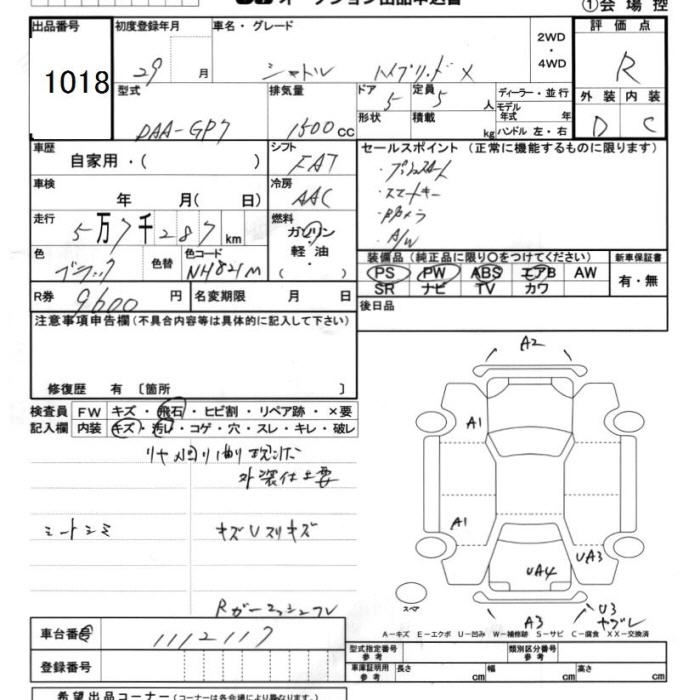 ①会場控
出品番号
1018
初度登録年月
29 月
車名・グレード
シャトル ハイブリッド X
2WD・4WD
評価点
R
型式
DAA-GP7
排気量
1500cc
ドア
5
定員
5 人
形状
積載
kg
ディーラー・並行
モデル年式 年
ハンドル 左・右
外装 内装
D C
車歴
自家用・( )
シフト
FAT
セールスポイント (正常に機能するものに限ります)
・プッシュスタート
・スマートキー
・Bカメラ
・A/W
車検
年 月( 日)
冷房
AAC
走行
5万7千287km
燃料
ガソリン
軽油
・( )
色
ブラック
色替
色コード
NH821M
装備品 (純正品に限り○をつけてください)
PS PW ABS エアB AW
SR ナビ TV カワ
新車保証書
有・無
R券
9600 円
名変期限 月 日
後日品
注意事項申告欄 (不具合内容等は具体的に記入して下さい)
修復歴 有 〔箇所 〕
検査員記入欄
FW キズ・飛石・ヒビ割・リペア跡・×要
内装 キズ・汚れ・コゲ・穴・スレ・キレ・破レ
外装仕上要
シートシミ
キズUスリキズ
A2
A1
A1
UA3
UA4
A3
U3
ヤブレ
スペア
A−キズ E−エクボ U−凹み W−補修跡 S−サビ C−腐食 XX−交換済
車台番号
1112117
登録番号
型式指定番号 参考
類別区分番号 参考
車庫証明用 参考 長さ cm 幅 cm 高さ cm
希望出品コーナー (コーナーは各会場により異なります)